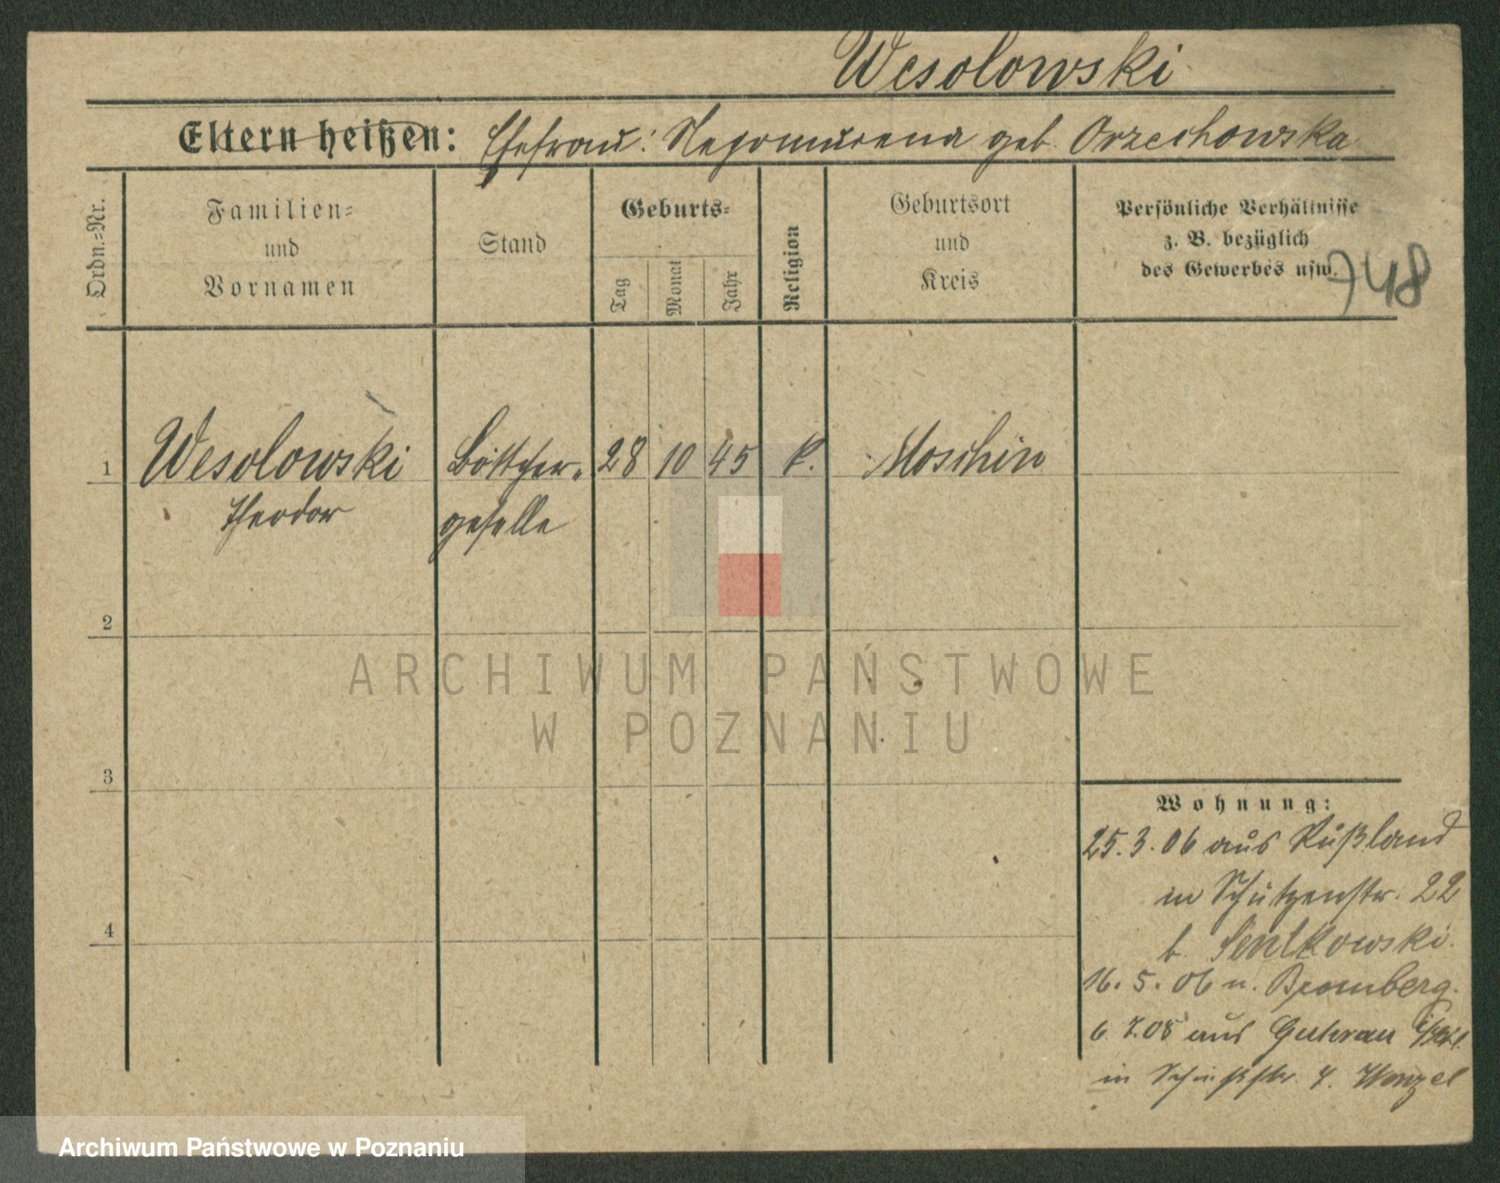 Wesolowski
Eltern heißen: Ehefrau: Nepomucena geb. Orzechowska
Ordn.-Nr.
Familien-
und
Vornamen
Stand
Geburts-
Tag
Monat
Jahr
Religion
Geburtsort
und
Kreis
Persönliche Verhältnisse
z. B. bezüglich
des Gewerbes usw.
748
1 Wesolowski Böttcher- 28 10 45 k. Moschin
Theodor geselle
2
ARCHIWUM PAŃSTWOWE
W POZNANIU
3
Wohnung:
25.3.06 aus Rußland
in Schützenstr. 22
b. Sentkowski.
4
16.5.06 n. Bromberg.
6.7.08 aus Guhrau
in 4. Wenzel
Archiwum Państwowe w Poznaniu